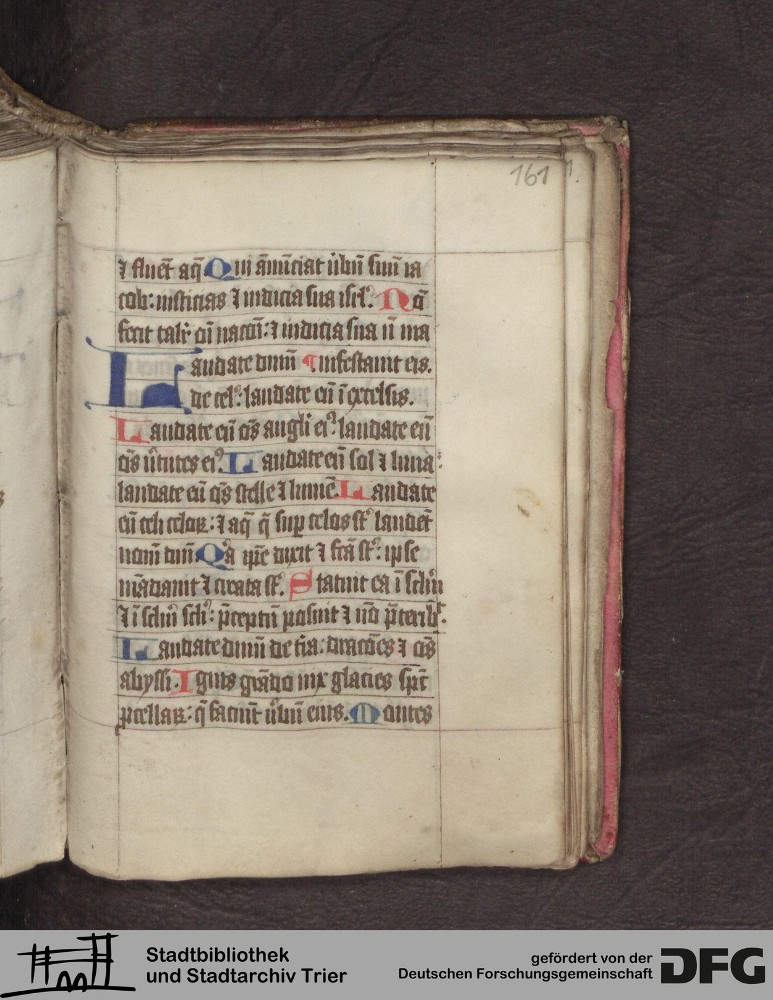 161
⁊ fluēt aq̄ Qui ānūciat ūbū suū ia
cob: iusticias ⁊ iudicia sua isrl'. Nō
fecit talr̄ oī nacōī: ⁊ iudicia sua nō ma
Laudate dnm̄ ¶ nifestauit eis.
de cel': laudate eū ī excelsis.
Laudate eū oēs angli ei': laudate eū
oēs ūtutes ei'. Laudate eū sol ⁊ luna:
laudate eū oēs stelle ⁊ lumē. Laudate
eū celi celoꝝ: ⁊ aq̄ q̄ suꝑ celos st' laudēt
nom̄ dn̄i. Qᵃ ip̄e dixit ⁊ fc̄a st': ipse
mādauit ⁊ creata st'. Statuit ea ī sclm̄
⁊ ī sclm̄ scli': p̄ceptū posuit ⁊ nō p̄teribit.
Laudate dnm̄ de t̄ra: dracōes ⁊ oēs
abyssi. Ignis grādo nix glacies sp̄c
ꝓcellaꝝ: q̄ faciūt ūbū eius. Montes
Stadtbibliothek
und Stadtarchiv Trier
gefördert von der
Deutschen Forschungsgemeinschaft DFG